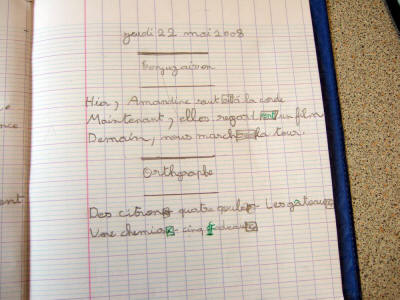 jeudi 22 mai 2008
Conjugaison
Hier, Amandine saut ait à la corde
Maintenant, elles regardent un film
Demain, nous march la tour.
Orthographe
Des citrons quatre poules - Les gateaux
Une chemise - cinq cadeaux